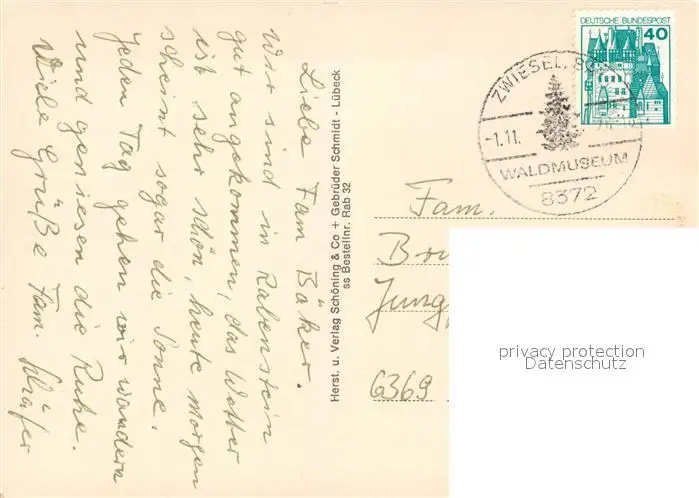 Liebe Fam Bäker.
Wir sind in Rabenstein
gut angekommen, das Wetter
ist sehr schön, heute Morgen
scheint sogar die Sonne.
Jeden Tag gehen wir wandern
und geniesen die Ruhe.
Viele Grüße Fam. Schäfer
Herst. u. Verlag Schöning & Co + Gebrüder Schmidt - Lübeck
ss Bestellnr. Rab 32
DEUTSCHE BUNDESPOST
40
ZWIESEL,
-1.11.
WALDMUSEUM
8372
Fam.
6369
privacy protection
Datenschutz